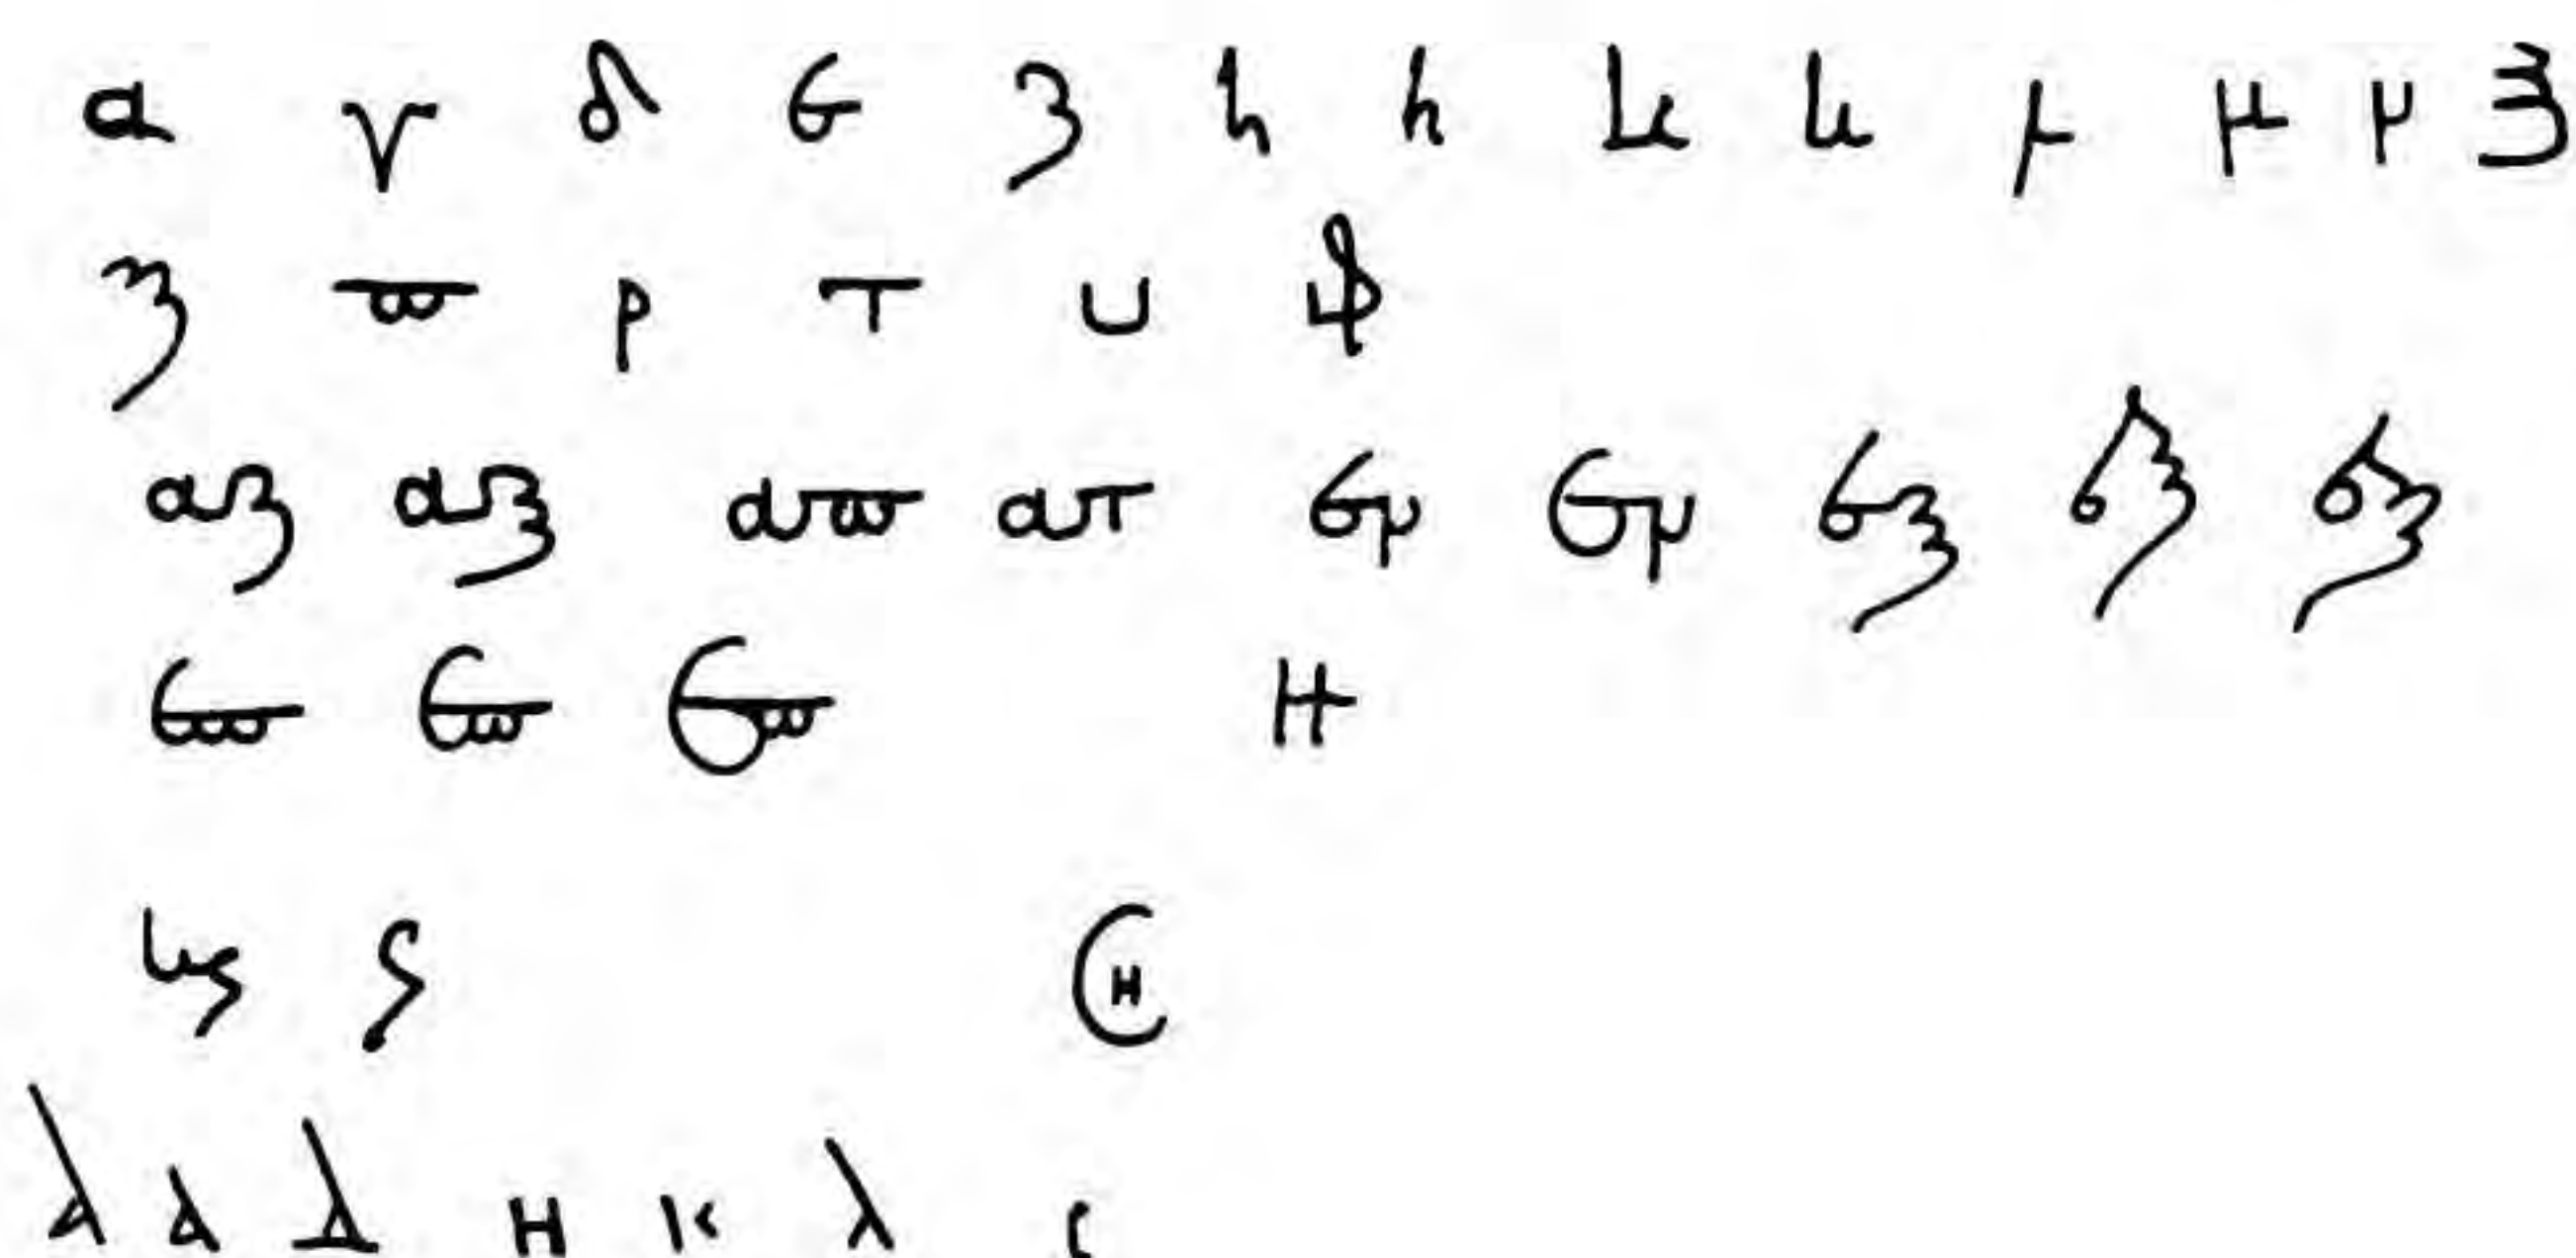 α γ δ ε ζ η η κ κ μ μ μ ξ
ξ π ρ τ υ φ
αξ αξ απ ατ εμ εμ εξ εξ εξ
επ επ επ Η
ς
α α δ Η κ λ